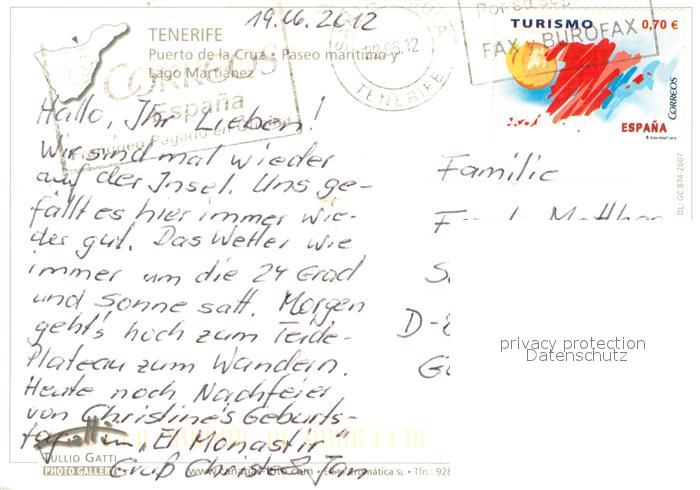 19.06.2012
TENERIFE
Puerto de la Cruz • Paseo marítimo y
Lago Martiánez
CORREOS
España
Franqueo Pagado
06.12
TENERIFE
FAX y BUROFAX
TURISMO 0,70 €
CORREOS
ESPAÑA
DL: GC 874-2007
Hallo, Ihr Lieben!
Wir sind mal wieder
auf der Insel. Uns ge-
fällt es hier immer wie-
der gut. Das Wetter wie
immer um die 24 Grad
und Sonne satt. Morgen
geht's hoch zum Teide-
Plateau zum Wandern.
Heute noch Nachfeier
von Christine's Geburts-
tag im „El Monastir"
Gruß Christel & Jan
Familie
D-
privacy protection
Datenschutz
TULLIO GATTI
PHOTO GALLERY